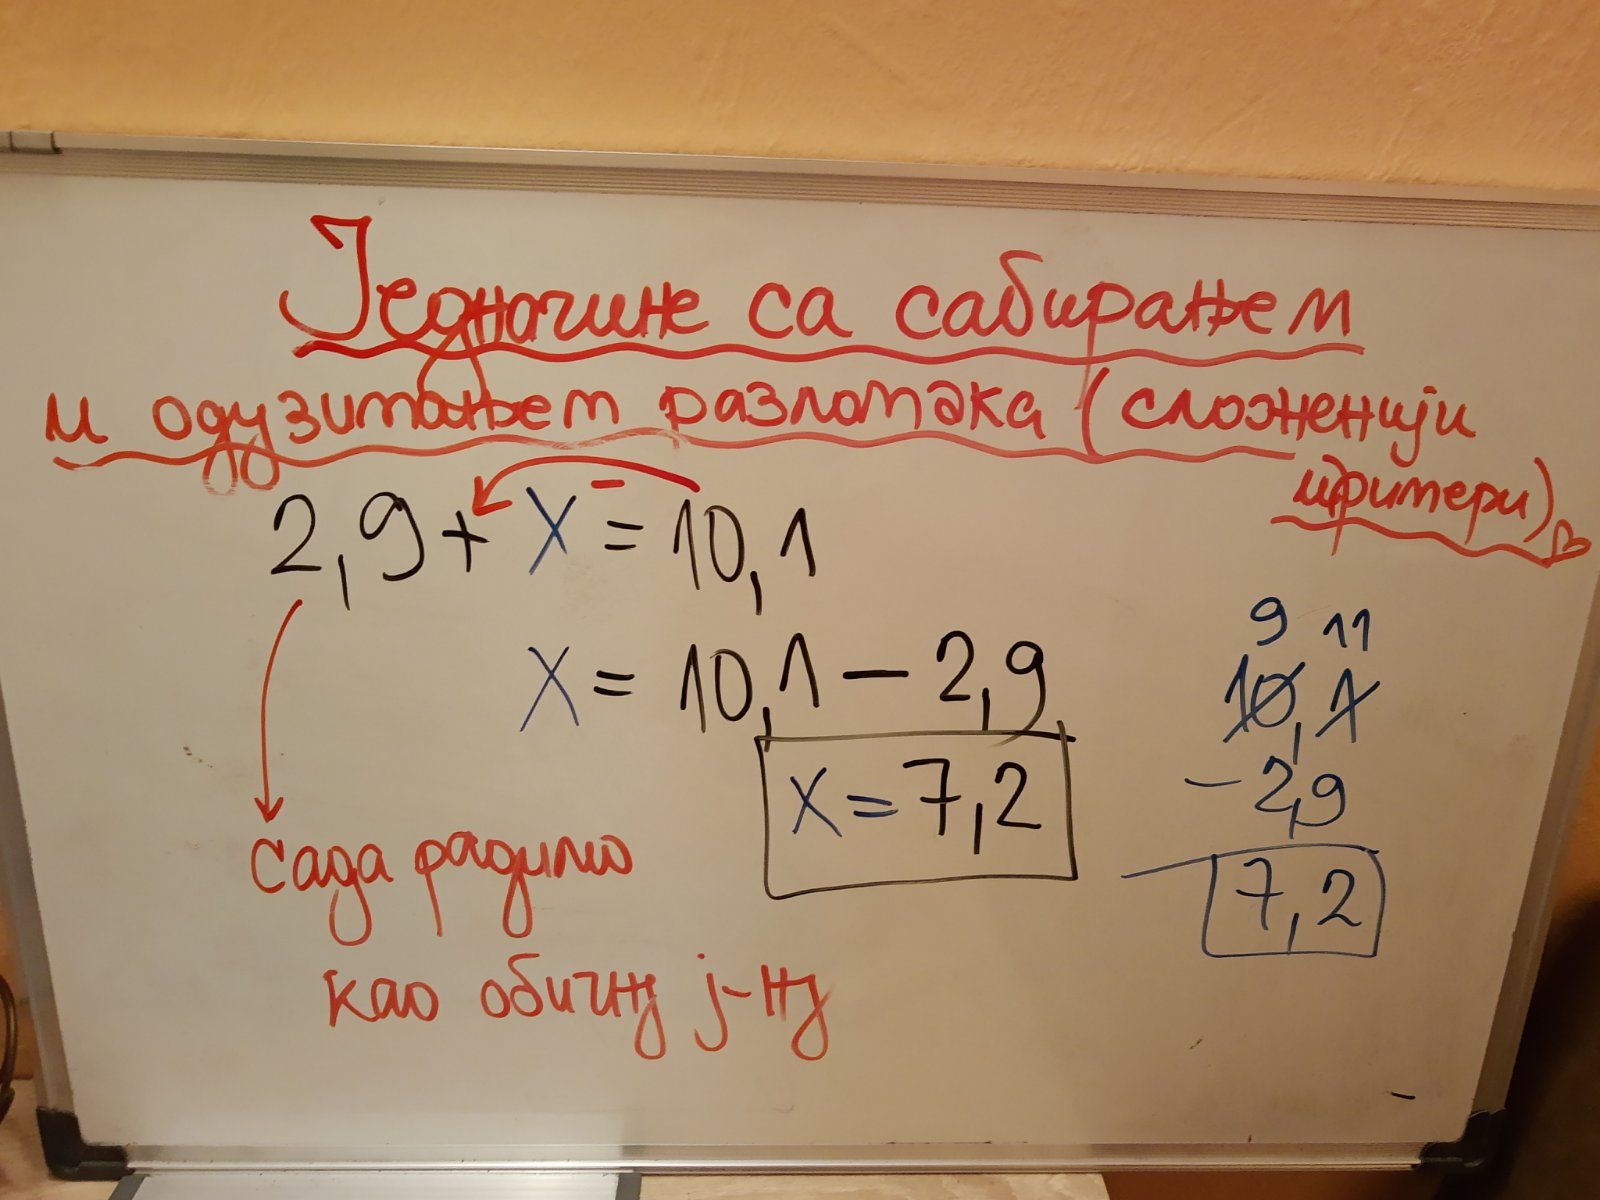 Једначине са сабирањем
и одузимањем разломака (сложенији
примери)
2,9 + x = 10,1
−
x = 10,1 − 2,9
x = 7,2
9 11
10,1
− 2,9
7,2
Сада радимо
као обичну ј-ну